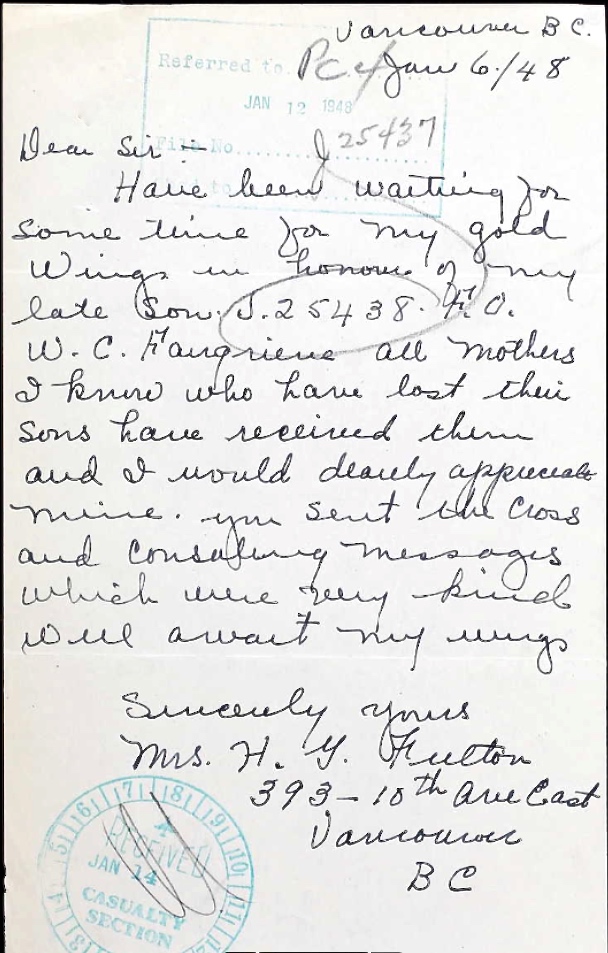 Vancouver B C.
Referred to.
P c 4 Jan 6./48
JAN 12 1948
File No.
J 25437
Dear Sir
Have been waiting for
some time for my gold
Wings in honour of my
late Son. J.25438. F.O.
W. C. Fairgrieve all Mothers
I know who have lost their
sons have received them
and I would dearly appreciate
mine. you sent the Cross
and Consoling Messages
which were very kind
Will await my wings
Sincerely yours
Mrs. H. Y. Fulton
393-10th Ave East
Vancouver
B C
RECEIVED
JAN 14
CASUALTY
SECTION